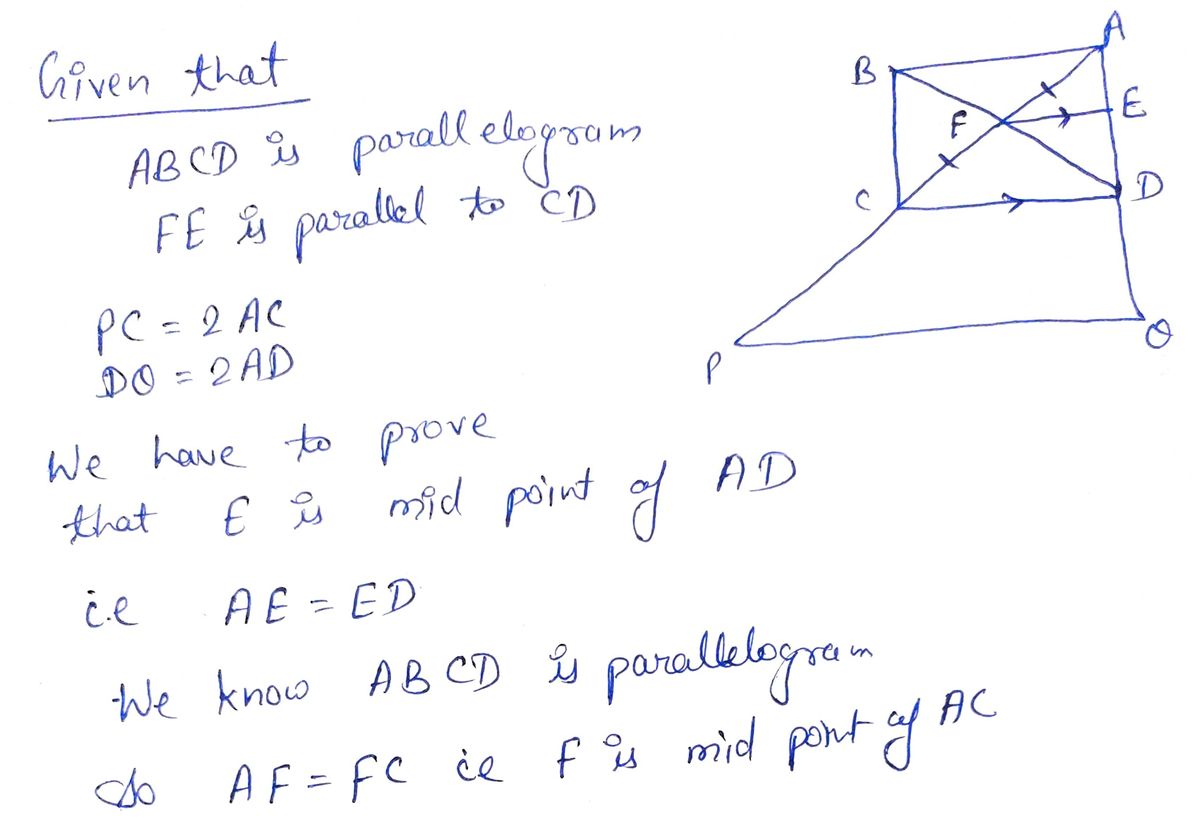 Given that
ABCD is parallelogram
FE is parallel to CD
PC = 2 AC
DQ = 2AD
We have to prove
that E is mid point of AD
i.e AE = ED
We know ABCD is parallelogram
so AF = FC ie F is mid point of AC
A
B
E
F
C
D
P
Q